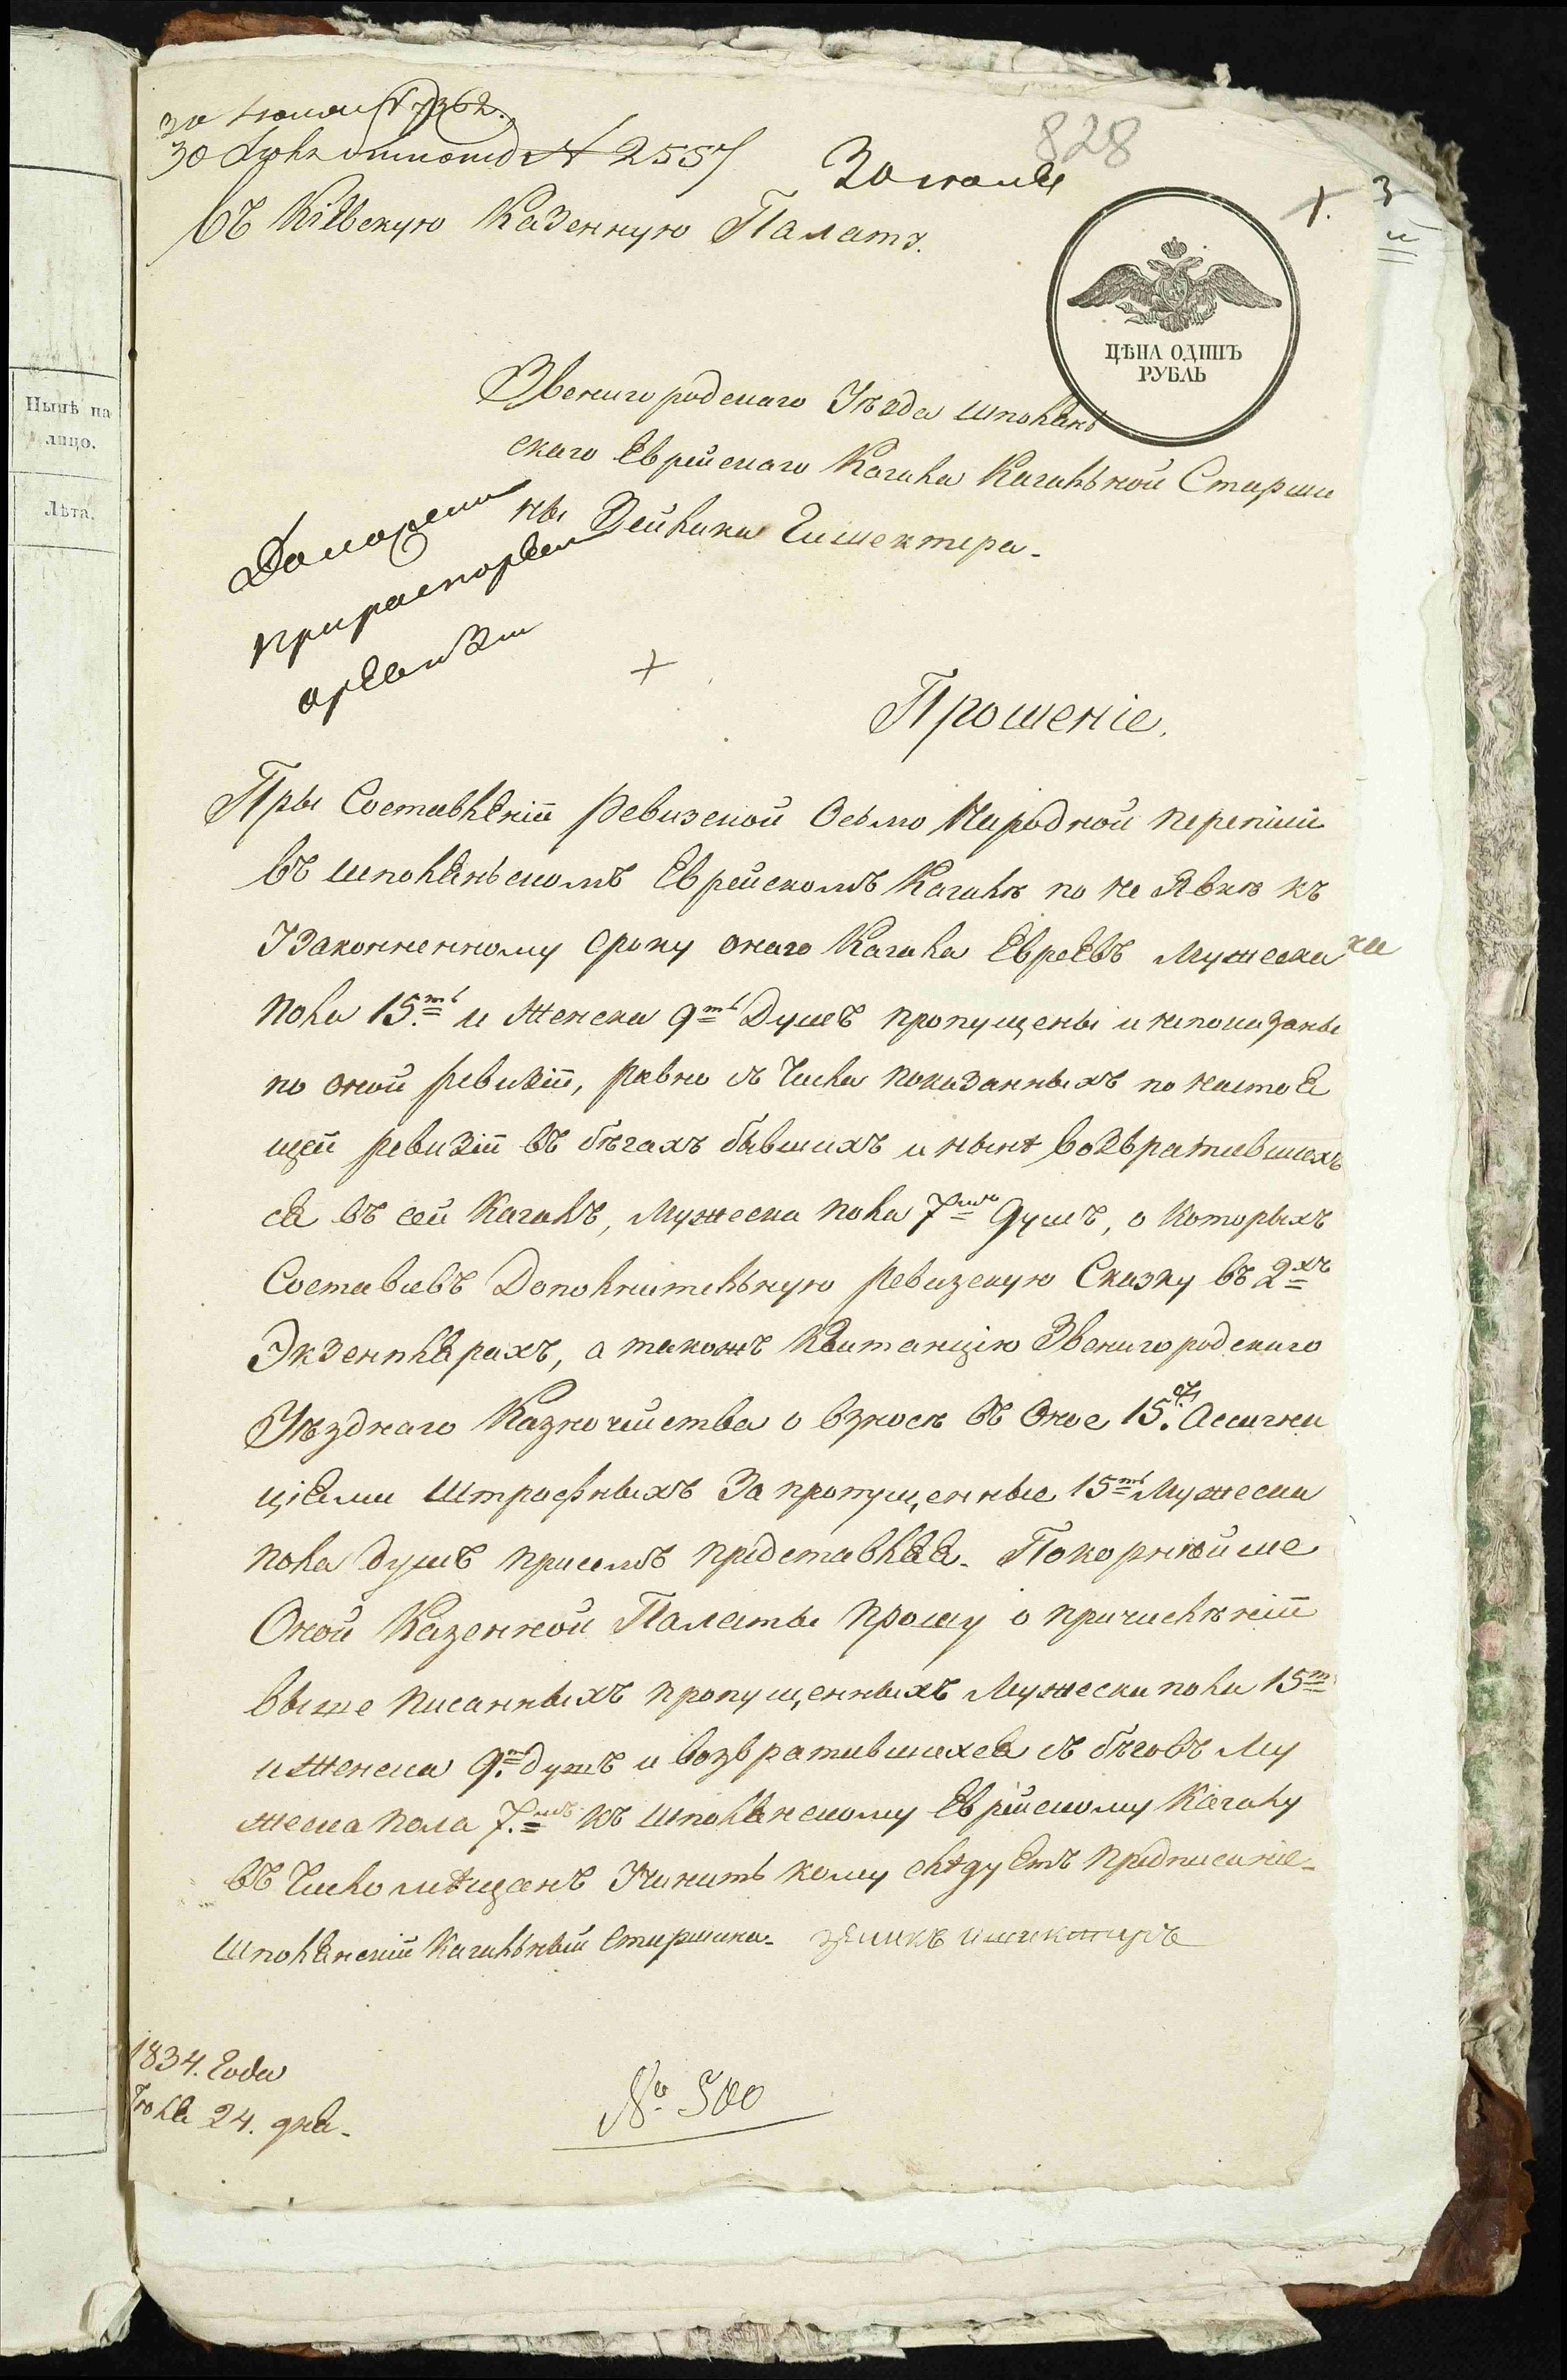 Нынѣ на
лицо.
Лѣта.
30 Июня N 7362.
N 2557
828
Въ Кіевскую Казенную Палату.
ЦѢНА ОДИНЪ
РУБЛЬ
Звенигородскаго Уѣзда Шполян
скаго Еврейскаго Кагала Кагальной Старши
ны Зейлика
Прошеніе.
Пры Составленіи Ревизской Осьмо Народной переписи
Въ Шполянскомъ Еврейскомъ Кагалѣ по не Явкѣ къ
Узаконненному Сроку онаго Кагала Евреевъ Мужеска
пола 15ть и Женска 9ть Душъ пропущены и непоказаны
по оной ревизіи, равно съ Числа показанныхъ по настоя
щей ревизіи въ бѣгахъ бывшихъ и нынѣ возвратившехъ
ся въ сей Кагалъ, Мужеска пола 7мь душъ, о которыхъ
Составивъ Дополнительную Ревизскую Сказку въ 2хъ
Экземплярахъ, а такожъ Квитанцію Звенигородскаго
Уѣзднаго Казначейства о взносѣ въ Оное 15. Ассигна
ціями Штрафныхъ За пропущенные 15ть Мужеска
пола душъ присемъ представляя. Покорнѣйше
Оной Казенной Палаты прошу о причисленіи
выше писанныхъ пропущенныхъ Мужеска пола 15ть
и Женска 9ть душъ и возвратившехся съ бѣговъ Му
жеска пола 7.мъ къ Шполянскому Еврейскому Кагалу
въ Число мѣщанъ Учинить кому слѣдуетъ предписаніе.
Шполянскій Кагальный Старшина.
1834. Года
Іюля 24. дня.
№ 500